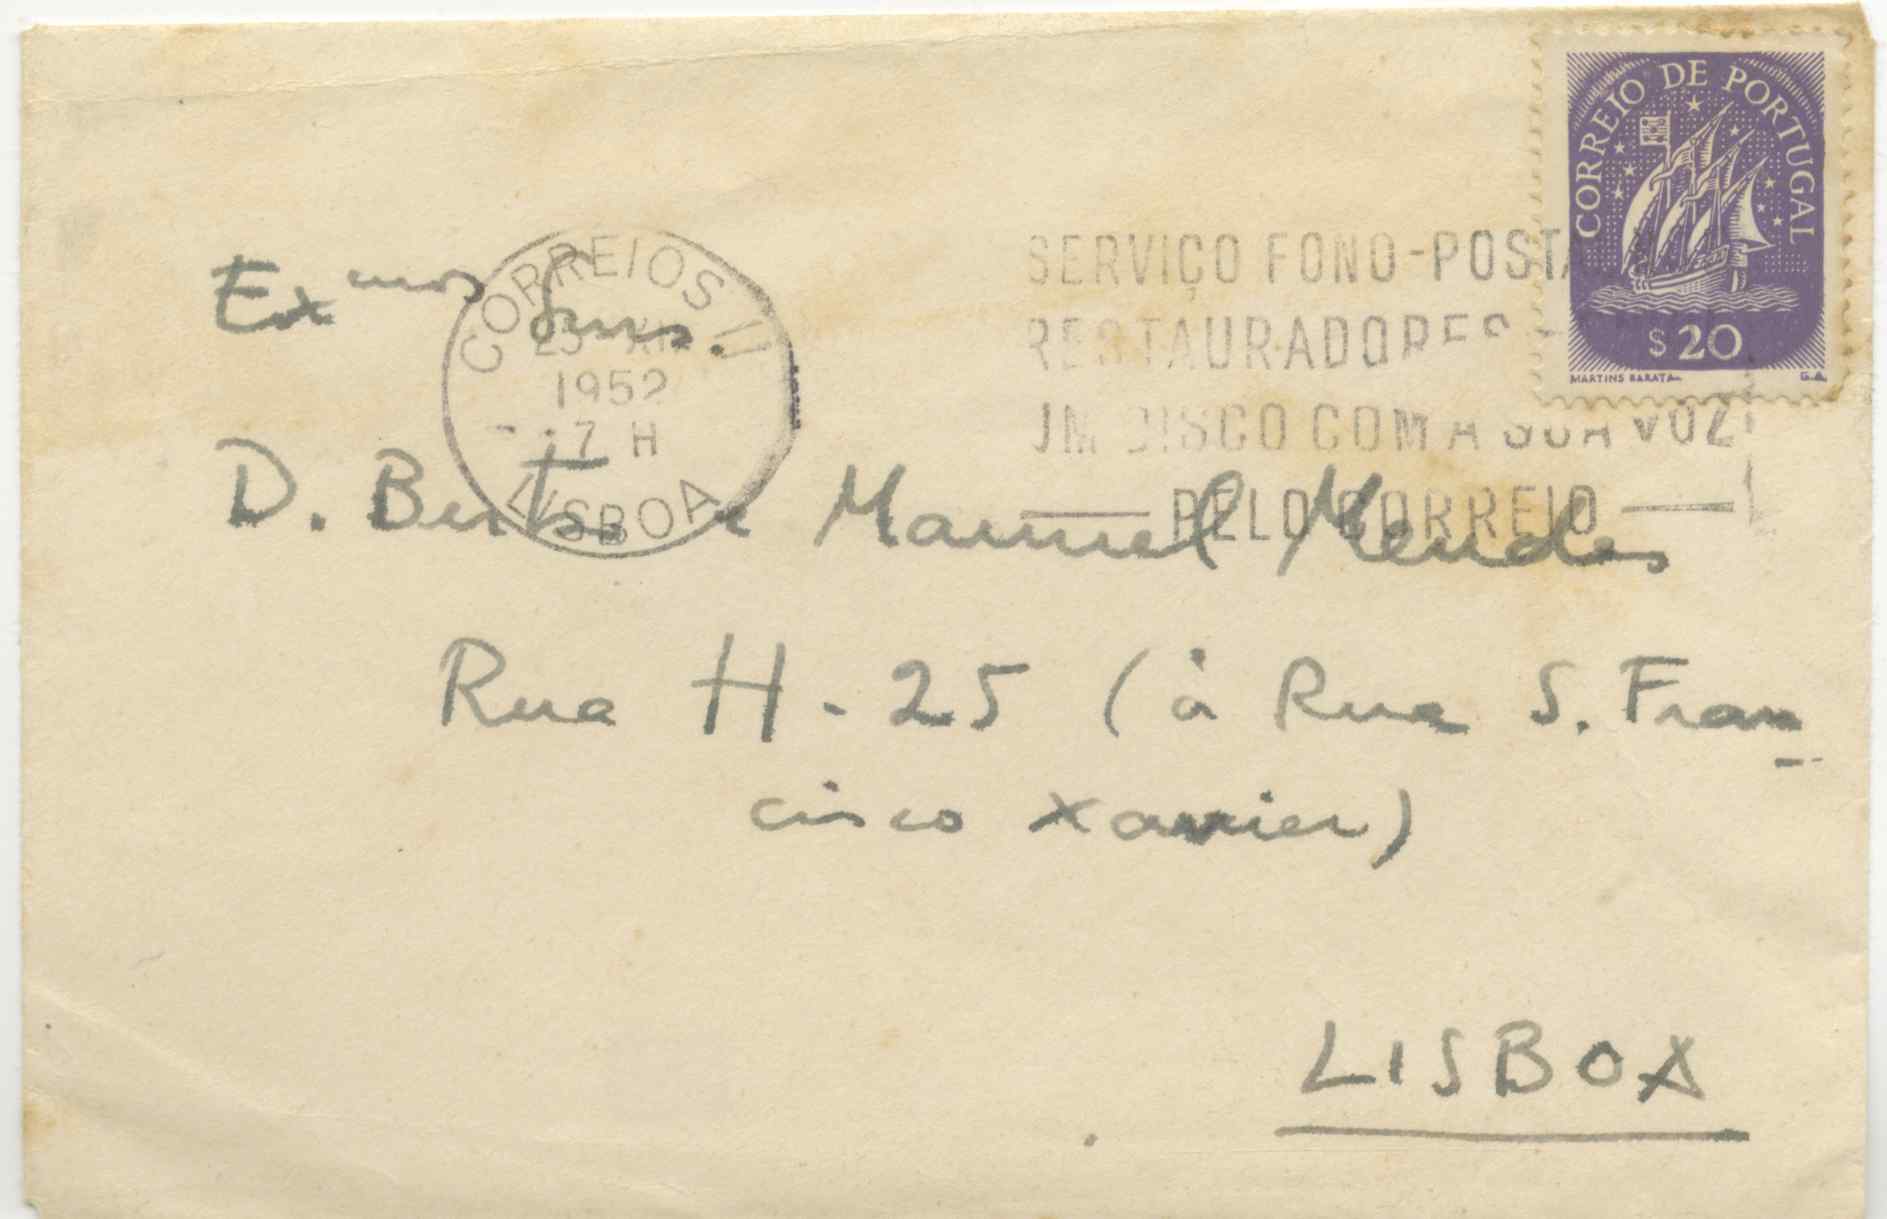 CORREIO DE PORTUGAL
$20
MARTINS BARATA G.A.
CORREIOS
1952
7 H
LISBOA
SERVIÇO FONO-POSTA
RESTAURADORES
UM DISCO COM A SUA VOZ
PELO CORREIO
Exmos Snrs.
D. Berta e Manuel Mendes
Rua H - 25 (à Rua S. Fran
cisco Xavier)
LISBOA